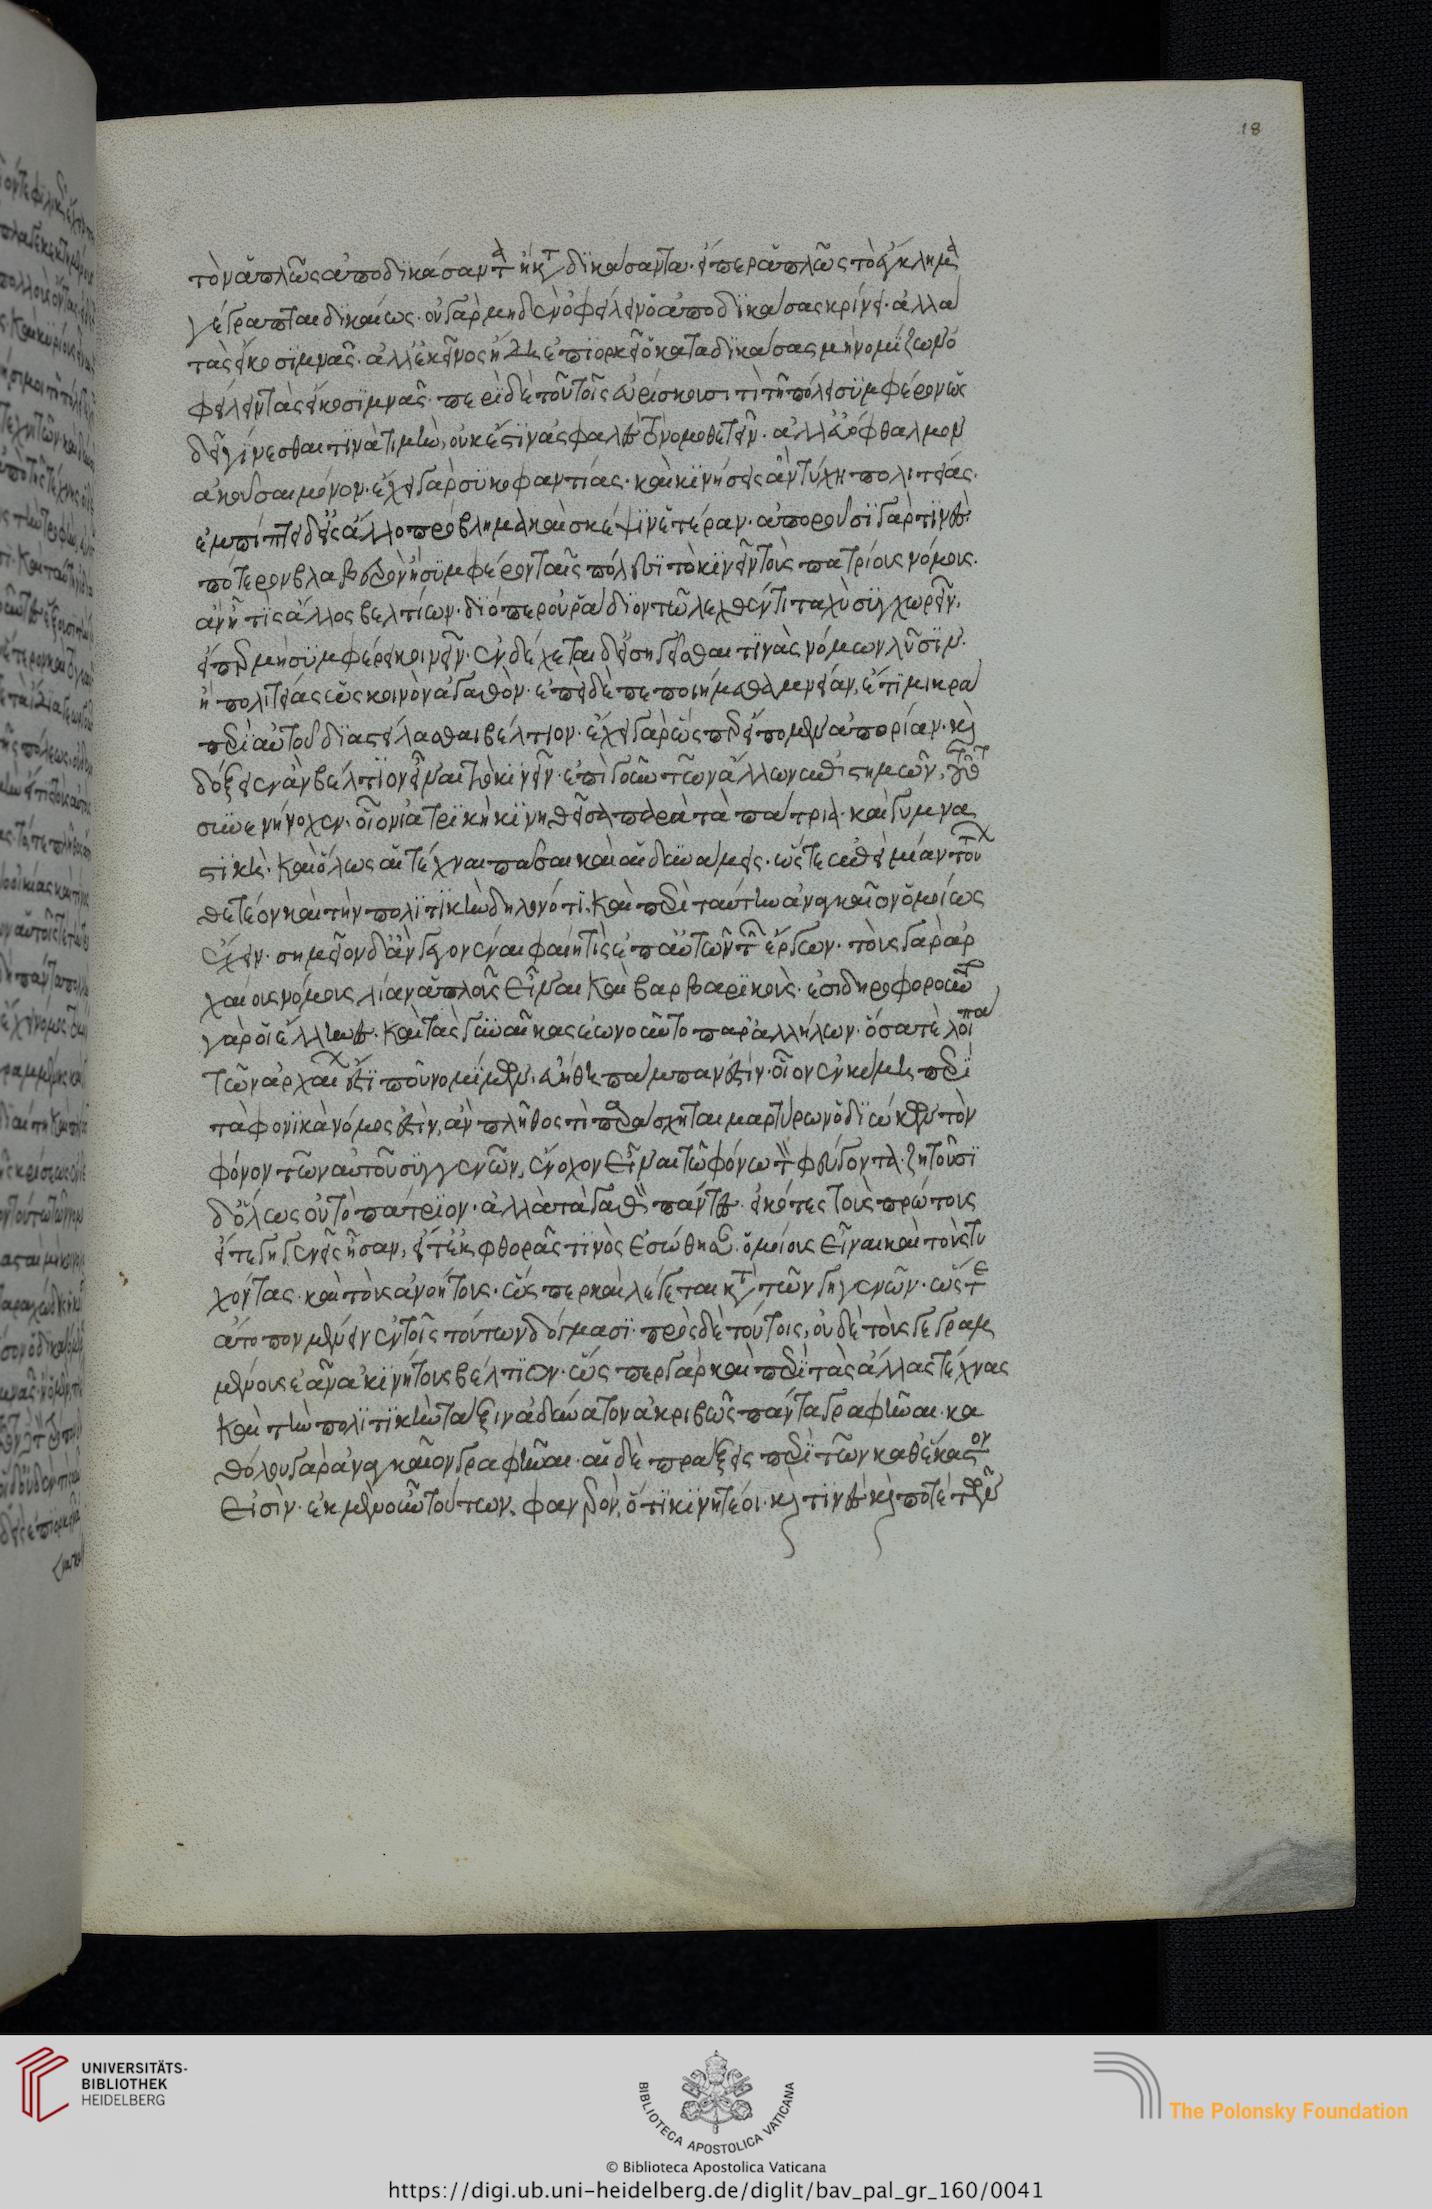 18
τὸν ἁπλῶς ἀποδικάσαντα ἢ καταδικάσαντα. εἴπερ ἁπλῶς τὸ ἔγκλημα
γέγραπται δικαίως. οὐ γὰρ μηδὲν ὀφείλειν ὁ ἀποδικάσας κρίνει. ἀλλὰ
τὰς εἴκοσι μνᾶς. ἀλλ' ἐκεῖνος ἤδη ἐπιορκεῖ ὁ καταδικάσας μὴ νομίζων ὀ
φείλειν τὰς εἴκοσι μνᾶς. περὶ δὲ τοῦ τοῖς εὑρίσκουσι τὶ τῇ πόλει συμφέρον ὡς
δεῖ γίνεσθαι τινὰ τιμὴν, οὐκ ἔστιν ἀσφαλὲς τὸ νομοθετεῖν. ἀλλ' εὐόφθαλμον
ἀκοῦσαι μόνον. ἔχει γὰρ συκοφαντίας. καὶ κινήσεις ἂν τύχῃ πολιτείας.
ἐμπίπτει δ' εἰς ἄλλο πρόβλημα καὶ σκέψιν ἑτέραν. ἀποροῦσι γὰρ τινὲς
πότερον βλαβερὸν ἢ συμφέρον ταῖς πόλεσι τὸ κινεῖν τοὺς πατρίους νόμους.
ἂν ᾖ τὶς ἄλλος βελτίων. διόπερ οὐ ῥάδιον τῶ λεχθέντι ταχὺ συγχωρεῖν,
εἴπερ μὴ συμφέρει κινεῖν. ἐνδέχεται δ' εἰσηγεῖσθαι τινὰς νόμων λύσιν.
ἢ πολιτείας ὡς κοινὸν ἀγαθὸν. ἐπεὶ δὲ πεποιήμεθα μνείαν, ἔτι μικρὰ
περὶ αὐτοῦ διαστείλασθαι βέλτιον. ἔχει γὰρ ὥσπερ εἴπομεν ἀπορίαν. καὶ
δόξειεν ἂν βέλτιον εἶναι τὸ κινεῖν. ἐπὶ γοῦν τῶν ἄλλων ἐπιστημῶν, τοῦτο
συνενήνοχεν. οἷον ἰατρικὴ κινηθεῖσα παρὰ τὰ πάτρια. καὶ γυμνα
στικὴ. καὶ ὅλως αἱ τέχναι πᾶσαι καὶ αἱ δυνάμεις. ὥστε ἐπεὶ μίαν τούτων
θετέον καὶ τὴν πολιτικὴν δηλονότι. καὶ περὶ ταύτην ἀναγκαῖον ὁμοίως
ἔχειν. σημεῖον δ' ἂν γεγονέναι φαίη τὶς ἐπ' αὐτῶν τῶν ἔργων. τοὺς γὰρ ἀρ
χαίους νόμους λίαν ἁπλοῦς εἶναι καὶ βαρβαρικοὺς. ἐσιδηροφοροῦντο
γὰρ οἱ ἕλληνες. καὶ τὰς γυναῖκας ἐωνοῦντο παρ' ἀλλήλων. ὅσα τὲ λοιπὰ
τῶν ἀρχαίων ἐστὶ που νομίμων. εὐήθη πάμπαν ἐστίν. οἷον ἐν κύμῃ περὶ
τὰ φονικὰ νόμος ἐστὶν, ἂν πλῆθος τὶ παράσχηται μαρτύρων ὁ διώκων τὸν
φόνον τῶν αὐτοῦ συγγενῶν, ἔνοχον εἶναι τῶ φόνω τὸν φεύγοντα. ζητοῦσι
δ' ὅλως οὐ τὸ πάτριον. ἀλλὰ τἀγαθὸν πάντες. εἰκός τε τοὺς πρώτους
εἴτε γηγενεῖς ἦσαν, εἴτ' ἐκ φθορᾶς τινὸς ἐσώθησαν. ὁμοίους εἶναι καὶ τοὺς τυ
χόντας. καὶ τοὺς ἀνοήτους. ὥσπερ καὶ λέγεται κατὰ τῶν γηγενῶν. ὥστε
ἄτοπον μένειν ἐν τοῖς τούτων δόγμασι. πρὸς δὲ τούτοις, οὐδὲ τοὺς γεγραμ
μένους ἐᾶν ἀκινήτους βέλτιον. ὥσπερ γὰρ καὶ περὶ τὰς ἄλλας τέχνας
καὶ τὴν πολιτικὴν τάξιν ἀδύνατον ἀκριβῶς πάντα γραφῆναι. κα
θόλου γὰρ ἀναγκαῖον γραφῆναι. αἱ δὲ πράξεις περὶ τῶν καθέκαστον
εἰσὶν. ἐκ μὲν οὖν τούτων, φανερὸν, ὅτι κινητέοι. καὶ τινὲς καὶ ποτὲ τῶν
UNIVERSITÄTS-
BIBLIOTHEK
HEIDELBERG
BIBLIOTECA APOSTOLICA VATICANA
The Polonsky Foundation
© Biblioteca Apostolica Vaticana
https://digi.ub.uni-heidelberg.de/diglit/bav_pal_gr_160/0041